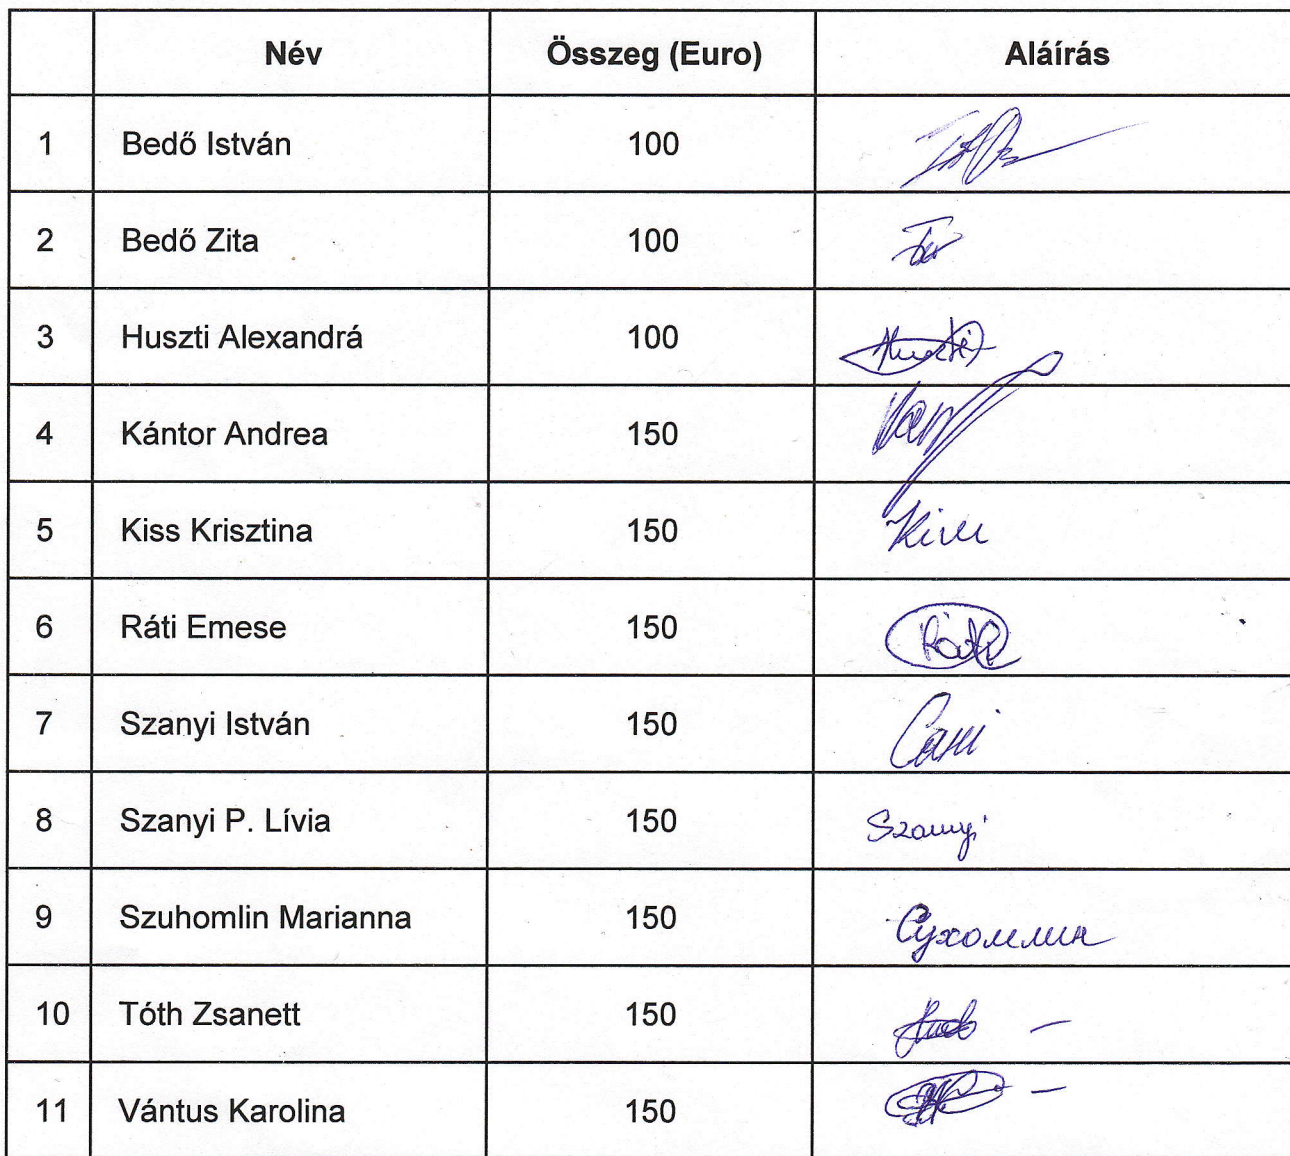 Név Összeg (Euro) Aláírás
1 Bedő István 100
2 Bedő Zita 100
3 Huszti Alexandrá 100 Huszti
4 Kántor Andrea 150
5 Kiss Krisztina 150 Kiss
6 Ráti Emese 150 Ráti
7 Szanyi István 150 Сані
8 Szanyi P. Lívia 150 Szanyi
9 Szuhomlin Marianna 150 Сухомлин
10 Tóth Zsanett 150 –
11 Vántus Karolina 150 –